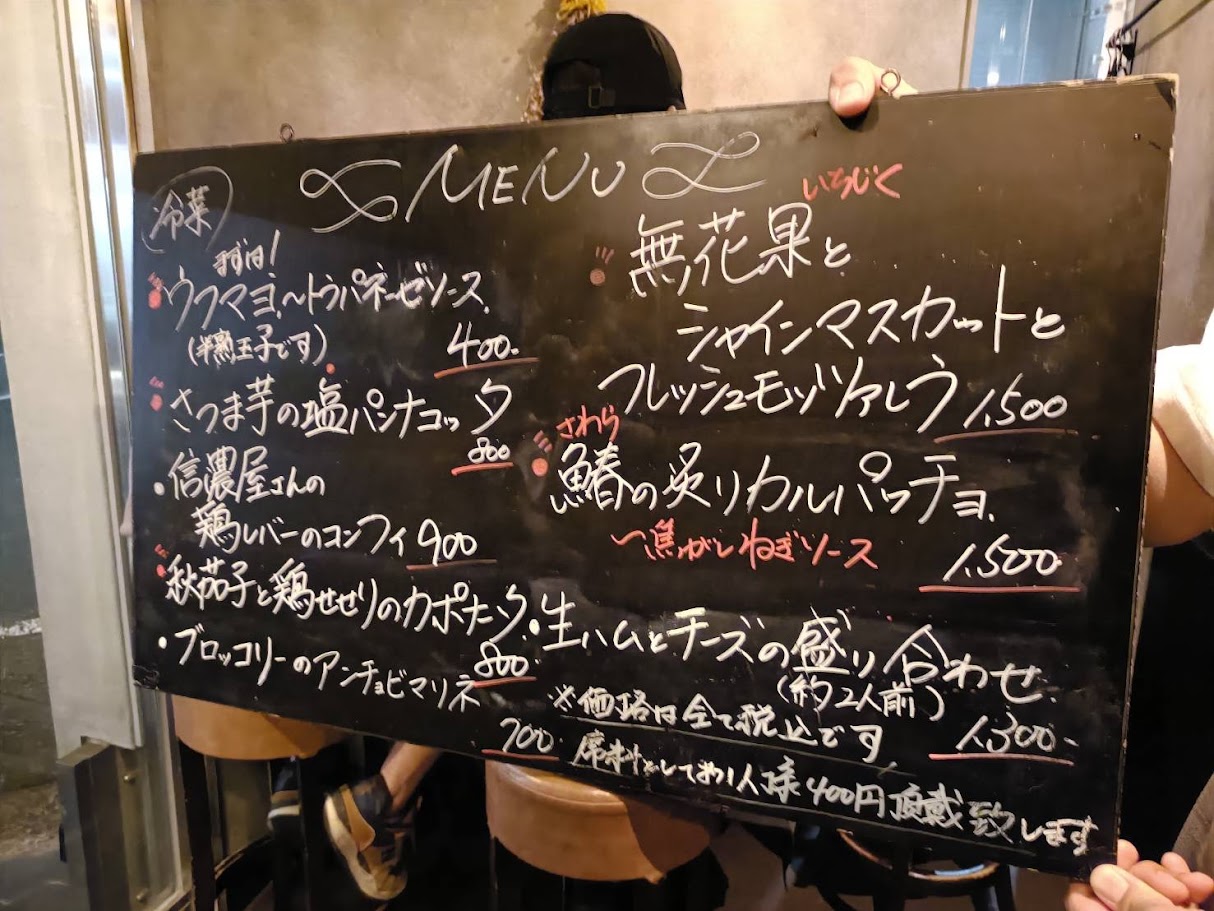 MENU
冷菜
まずは!
・ウフマヨ.〜トゥパネーゼソース.
(半熟玉子です) 400-
・さつま芋の塩パンナコッタ
800
・信濃屋さんの
鶏レバーのコンフィ 900
・秋茄子と鶏せせりのカポナータ
800-
・ブロッコリーのアンチョビマリネ
700-
いちじく
・無花果と
シャインマスカットと
フレッシュモッツァレラ 1,500
さわら
・鰆の炙りカルパッチョ.
〜焦がしねぎソース 1,500-
・生ハムとチーズの盛り合わせ
(約2人前) 1,300-
※価格は全て税込です
席料としてお1人様400円頂戴致します